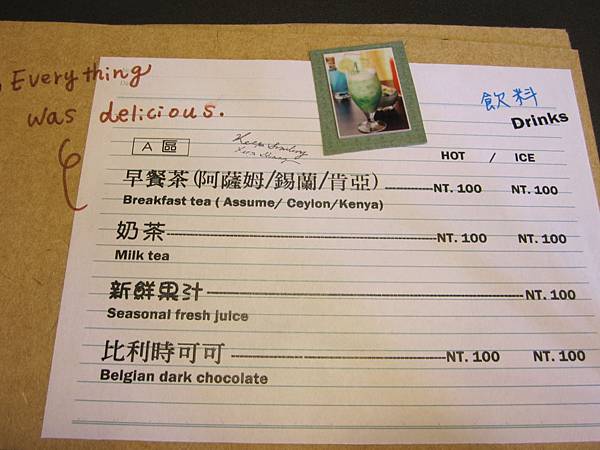 Everything
was delicious.
飲料
Drinks
A 區
Keep Smiling
HOT / ICE
早餐茶(阿薩姆/錫蘭/肯亞)----NT. 100 NT. 100
Breakfast tea ( Assume/ Ceylon/Kenya)
奶茶----NT. 100 NT. 100
Milk tea
新鮮果汁----NT. 100
Seasonal fresh juice
比利時可可----NT. 100 NT. 100
Belgian dark chocolate